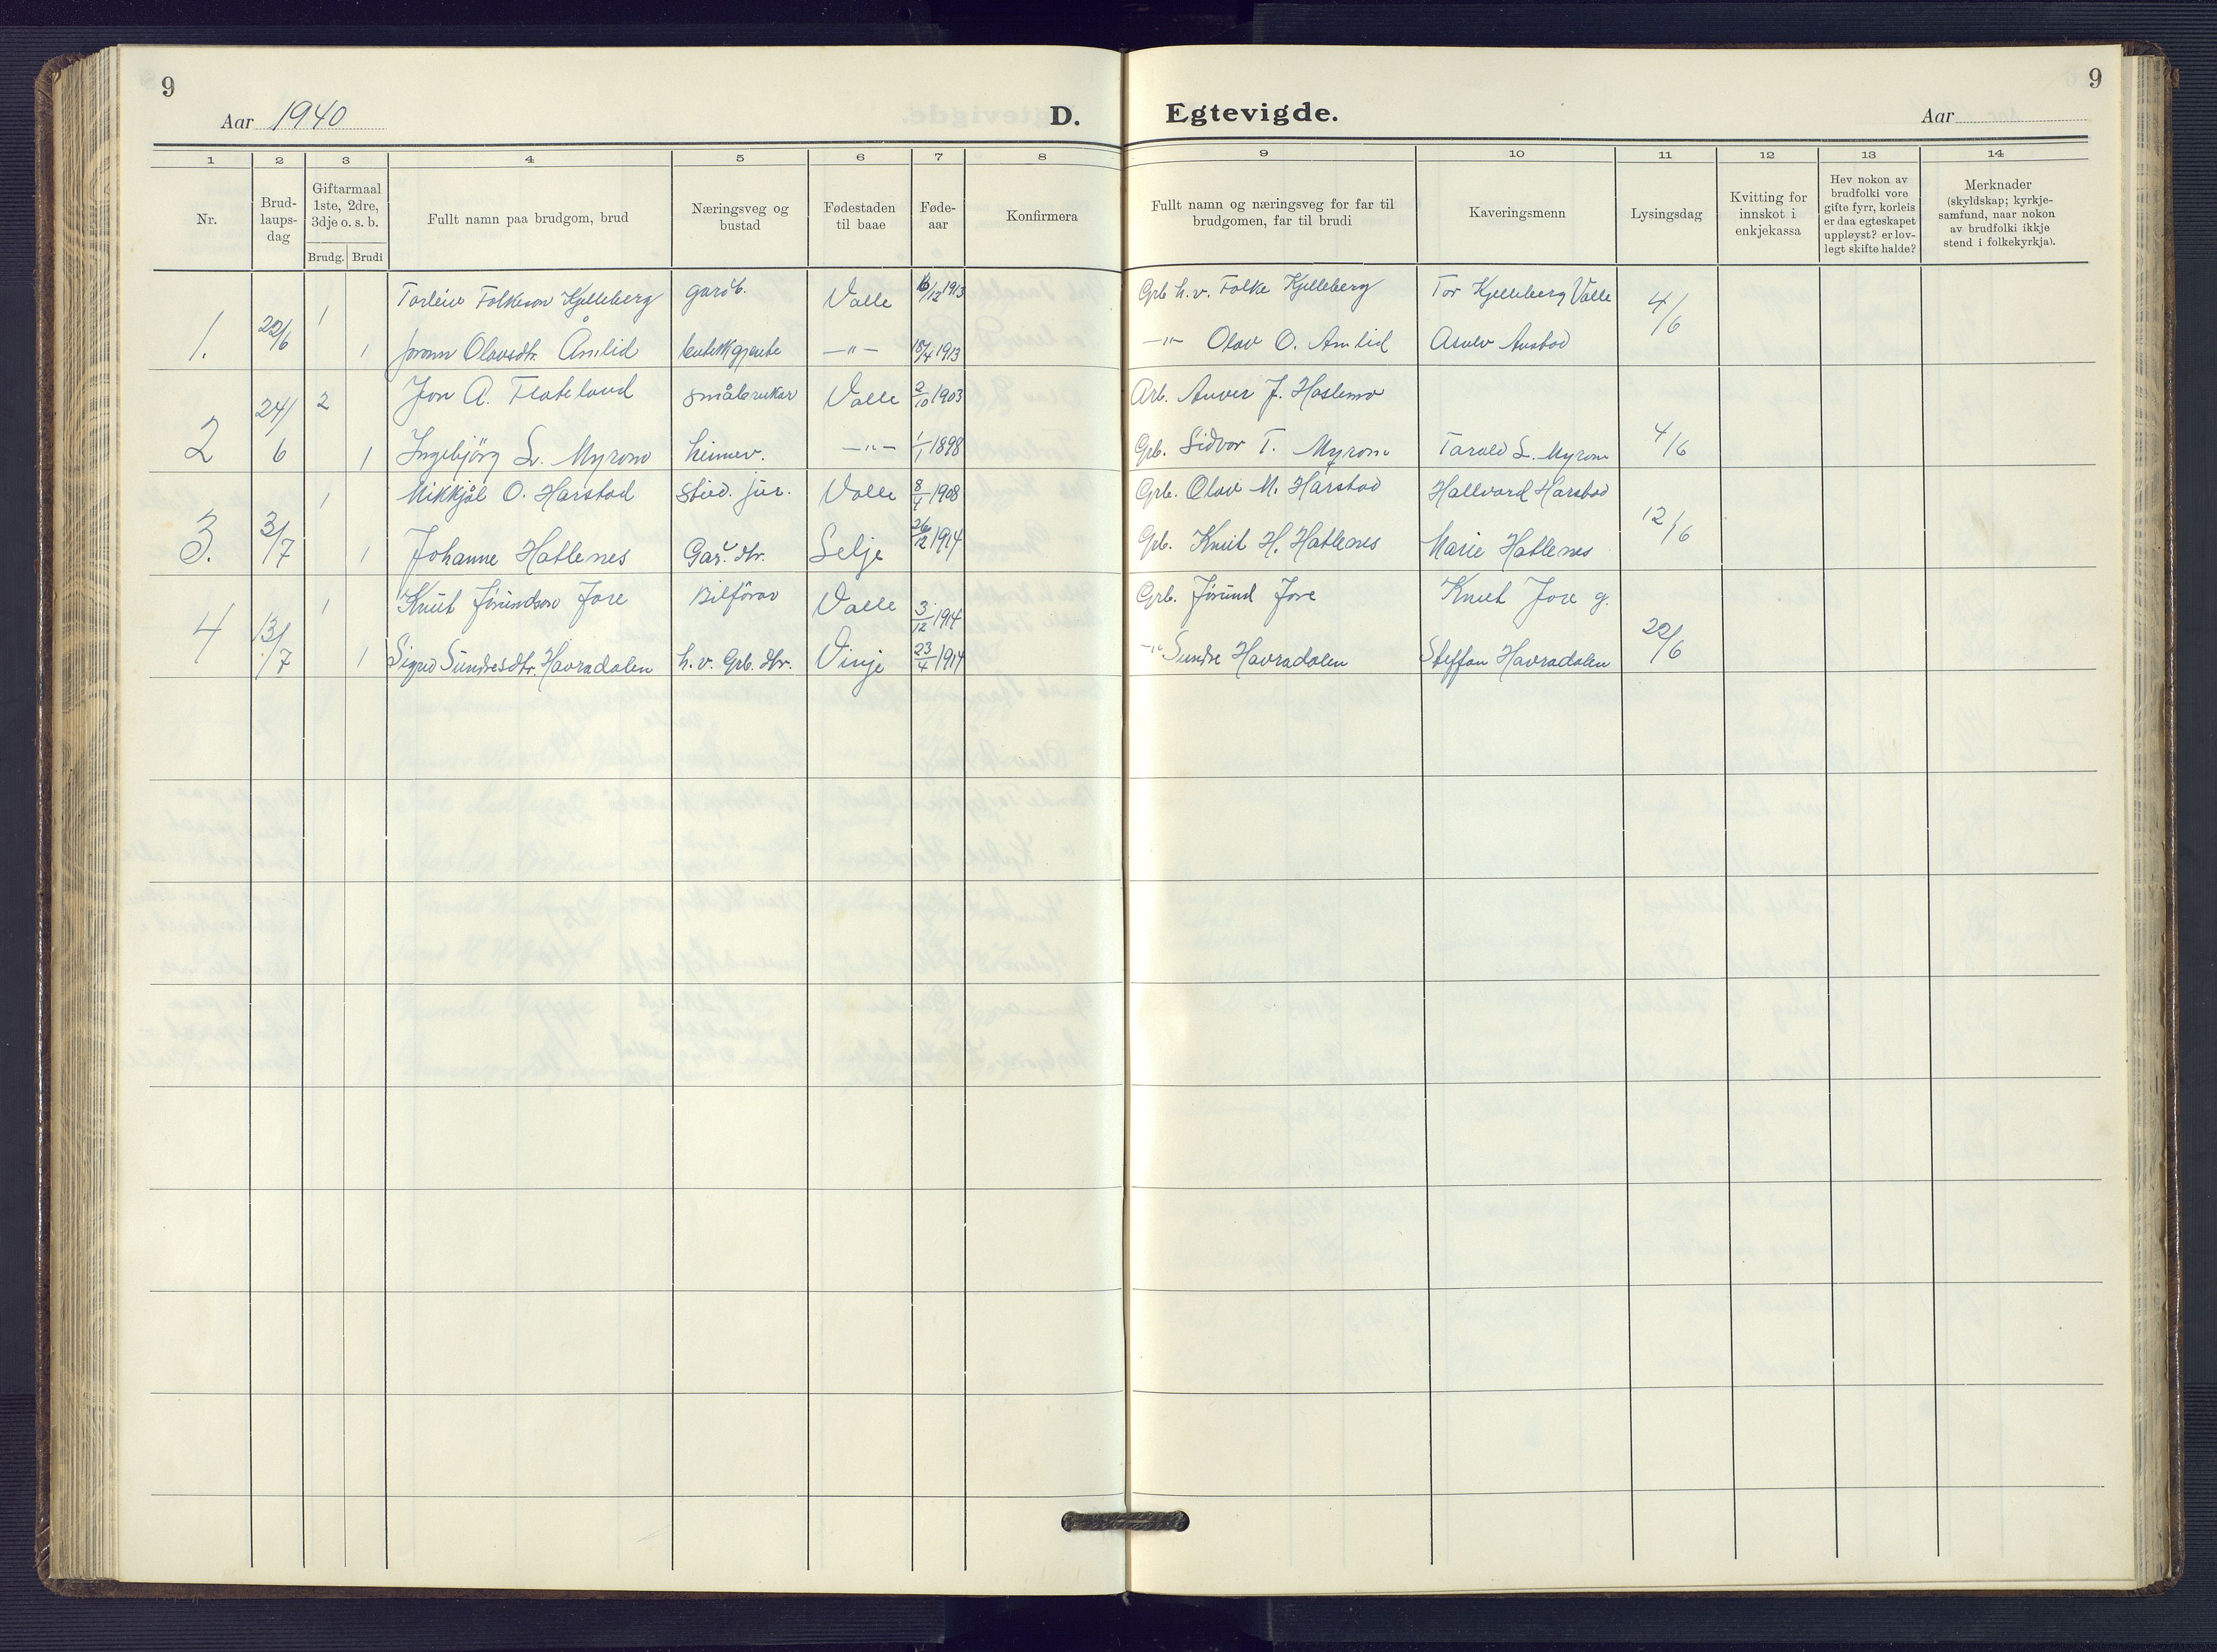 9
Aar 1940
D. Egtevigde.
Aar
9
1 2 3 4 5 6 7 8 9 10 11 12 13 14
Nr.
Brud-
laups-
dag
Giftarmaal
1ste, 2dre,
3dje o. s. b.
Brudg. Brudi
Fullt namn paa brudgom, brud
Næringsveg og
bustad
Fødestaden
til baae
Føde-
aar
Konfirmera
Fullt namn og næringsveg for far til
brudgomen, far til brudi
Kaveringsmenn
Lysingsdag
Kvitting for
innskot i
enkjekassa
Hev nokon av
brudfolki vore
gifte fyrr, korleis
er daa egteskapet
uppløyst? er lov-
legt skifte halde?
Merknader
(skyldskap; kyrkje-
samfund, naar nokon
av brudfolki ikkje
stend i folkekyrkja).
1. 22/6 1 Torleiv Folkeson Kjelleberg gardb. Valle 6/12 1913 Grb h.v. Folke Kjelleberg Tor Kjelleberg Valle 4/6
1 Jorunn Olavsdtr. Åmlid butikkgjente —"— 18/4 1913 —"— Olav O. Åmlid Asulv Austad
2 24/6 2 Jon A. Flateland småbrukar Valle 2/10 1903 Arb. Anver J. Haslemo
1 Ingebjörg S. Myrom heimev. —"— 1/1 1898 Grb. Sidvor T. Myrom Tarald S. Myrom 4/6
3. 3/7 1 Mikkjål O. Harstad Stud. jur. Valle 8/4 1908 Grb. Olav M. Harstad Hallvard Harstad 12/6
1 Johanne Hatlenes Gard. dtr. Selje 26/12 1914 Grb. Knut H. Hatlenes Marie Hatlenes
4 13/7 1 Knut Jórundson Jore Bilförar Valle 3/12 1914 Grb. Jórund Jore Knut Jore g. 22/6
1 Sigrid Sundresdtr. Havradalen h.v. Grb. dtr. Vinje 23/4 1914 —"— Sundre Havradalen Steffan Havradalen